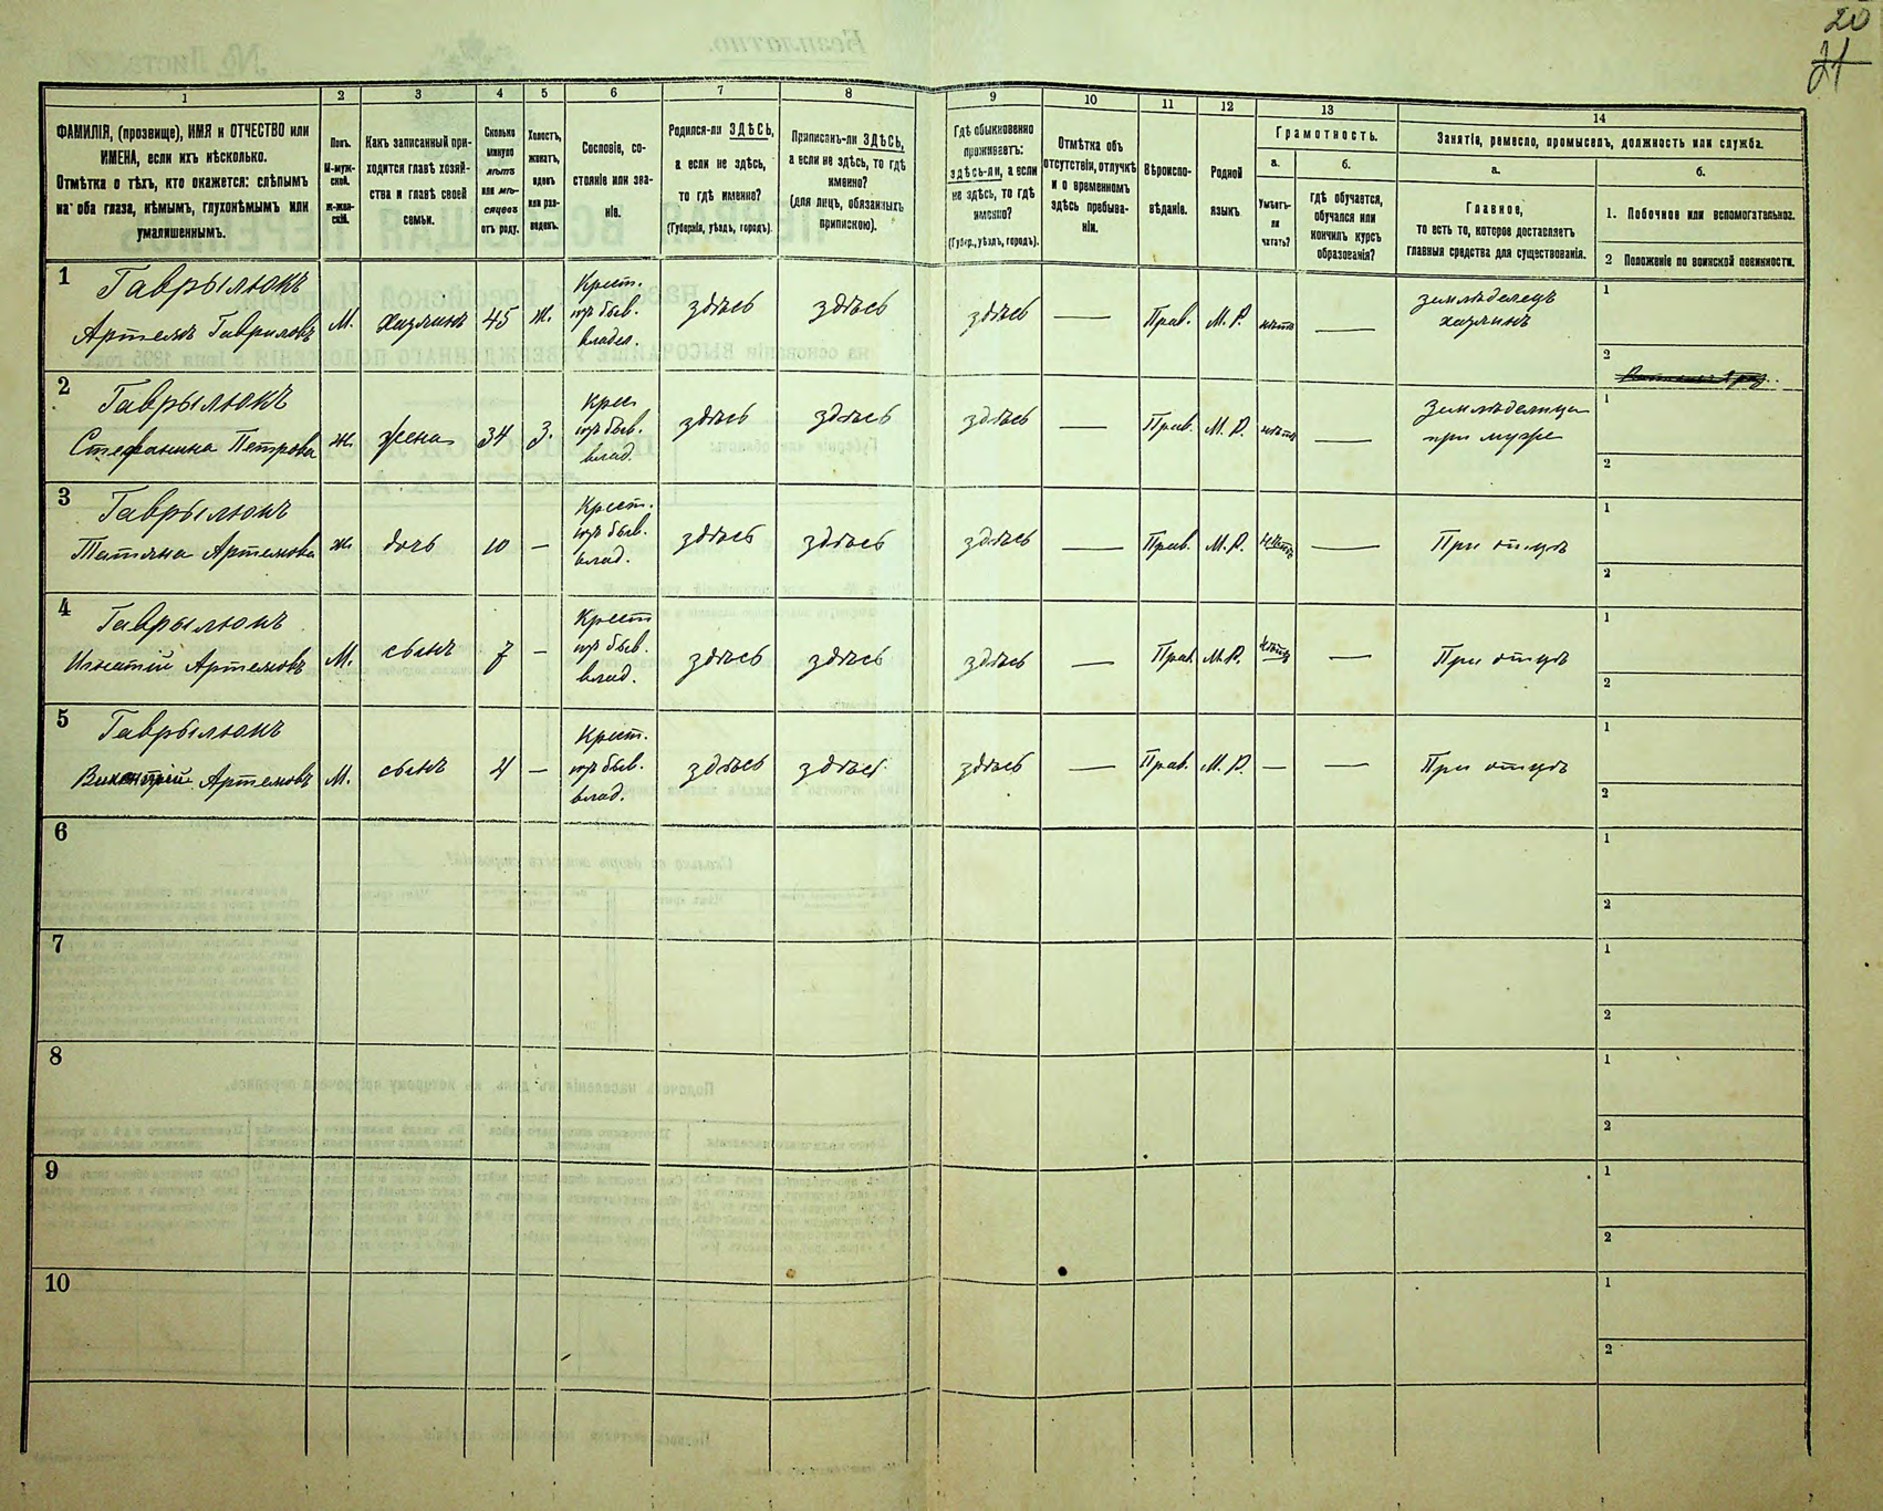 20
21
1 2 3 4 5 6 7 8 9 10 11 12 13 14
ФАМИЛІЯ, (прозвище), ИМЯ и ОТЧЕСТВО или
ИМЕНА, если ихъ нѣсколько.
Отмѣтка о тѣхъ, кто окажется: слѣпымъ
на оба глаза, нѣмымъ, глухонѣмымъ или
умалишеннымъ.
Полъ.
М-муж-
ской.
ж-жен-
скій.
Какъ записанный при-
ходится главѣ хозяй-
ства и главѣ своей
семьи.
Сколько
минуло
лѣтъ
или мѣ-
сяцевъ
отъ роду.
Холостъ,
женатъ,
вдовъ
или раз-
веденъ.
Сословіе, со-
стояніе или зва-
ніе.
Родился-ли ЗДѢСЬ,
а если не здѣсь,
то гдѣ именно?
(Губернія, уѣздъ, городъ).
Приписанъ-ли ЗДѢСЬ,
а если не здѣсь, то гдѣ
именно?
(для лицъ, обязанныхъ
припискою).
Гдѣ обыкновенно
проживаетъ:
здѣсь-ли, а если
не здѣсь, то гдѣ
именно?
(Губер., уѣздъ, городъ).
Отмѣтка объ
отсутствіи, отлучкѣ
и о временномъ
здѣсь пребыва-
ніи.
Вѣроиспо-
вѣданіе.
Родной
языкъ.
Грамотность.
а.
Умѣетъ-
ли
читать?
б.
гдѣ обучается,
обучался или
кончилъ курсъ
образованія?
Занятіе, ремесло, промыселъ, должность или служба.
а.
Главное,
то есть то, которое доставляетъ
главныя средства для существованія.
б.
1. Побочное или вспомогательное.
2 Положеніе по воинской повинности.
1
Гаврылюкъ
Артемъ Гавриловъ
М. хазяинъ 45 ж.
Крест.
изъ быв.
владел.
здѣсь здѣсь здѣсь — Прав. М. Р. нѣтъ —
земледелецъ
хазяинъ
1
2
2
Гаврылюкъ
Стефанина Петрова
ж. жена 34 З.
Крес
изъ быв.
влад.
здѣсь здѣсь здѣсь — Прав. М. Р. нѣтъ —
Земледелица
при муже
1
2
3
Гаврылюкъ
Татіяна Артемова
ж. дочь 10 —
Крест.
изъ быв.
влад.
здѣсь здѣсь здѣсь — Прав. М. Р. нѣтъ —
При отцѣ
1
2
4
Гаврылюкъ
Игнатій Артемовъ
М. сынъ 7 —
Крест
изъ быв.
влад.
здѣсь здѣсь здѣсь — Прав. М. Р. нѣтъ —
При отцѣ
1
2
5
Гаврылюкъ
Викентій Артемовъ
М. сынъ 4 —
Крест.
изъ быв.
влад.
здѣсь здѣсь здѣсь — Прав. М. Р. — —
При отцѣ
1
2
6
1
2
7
1
2
8
1
2
9
1
2
10
1
2